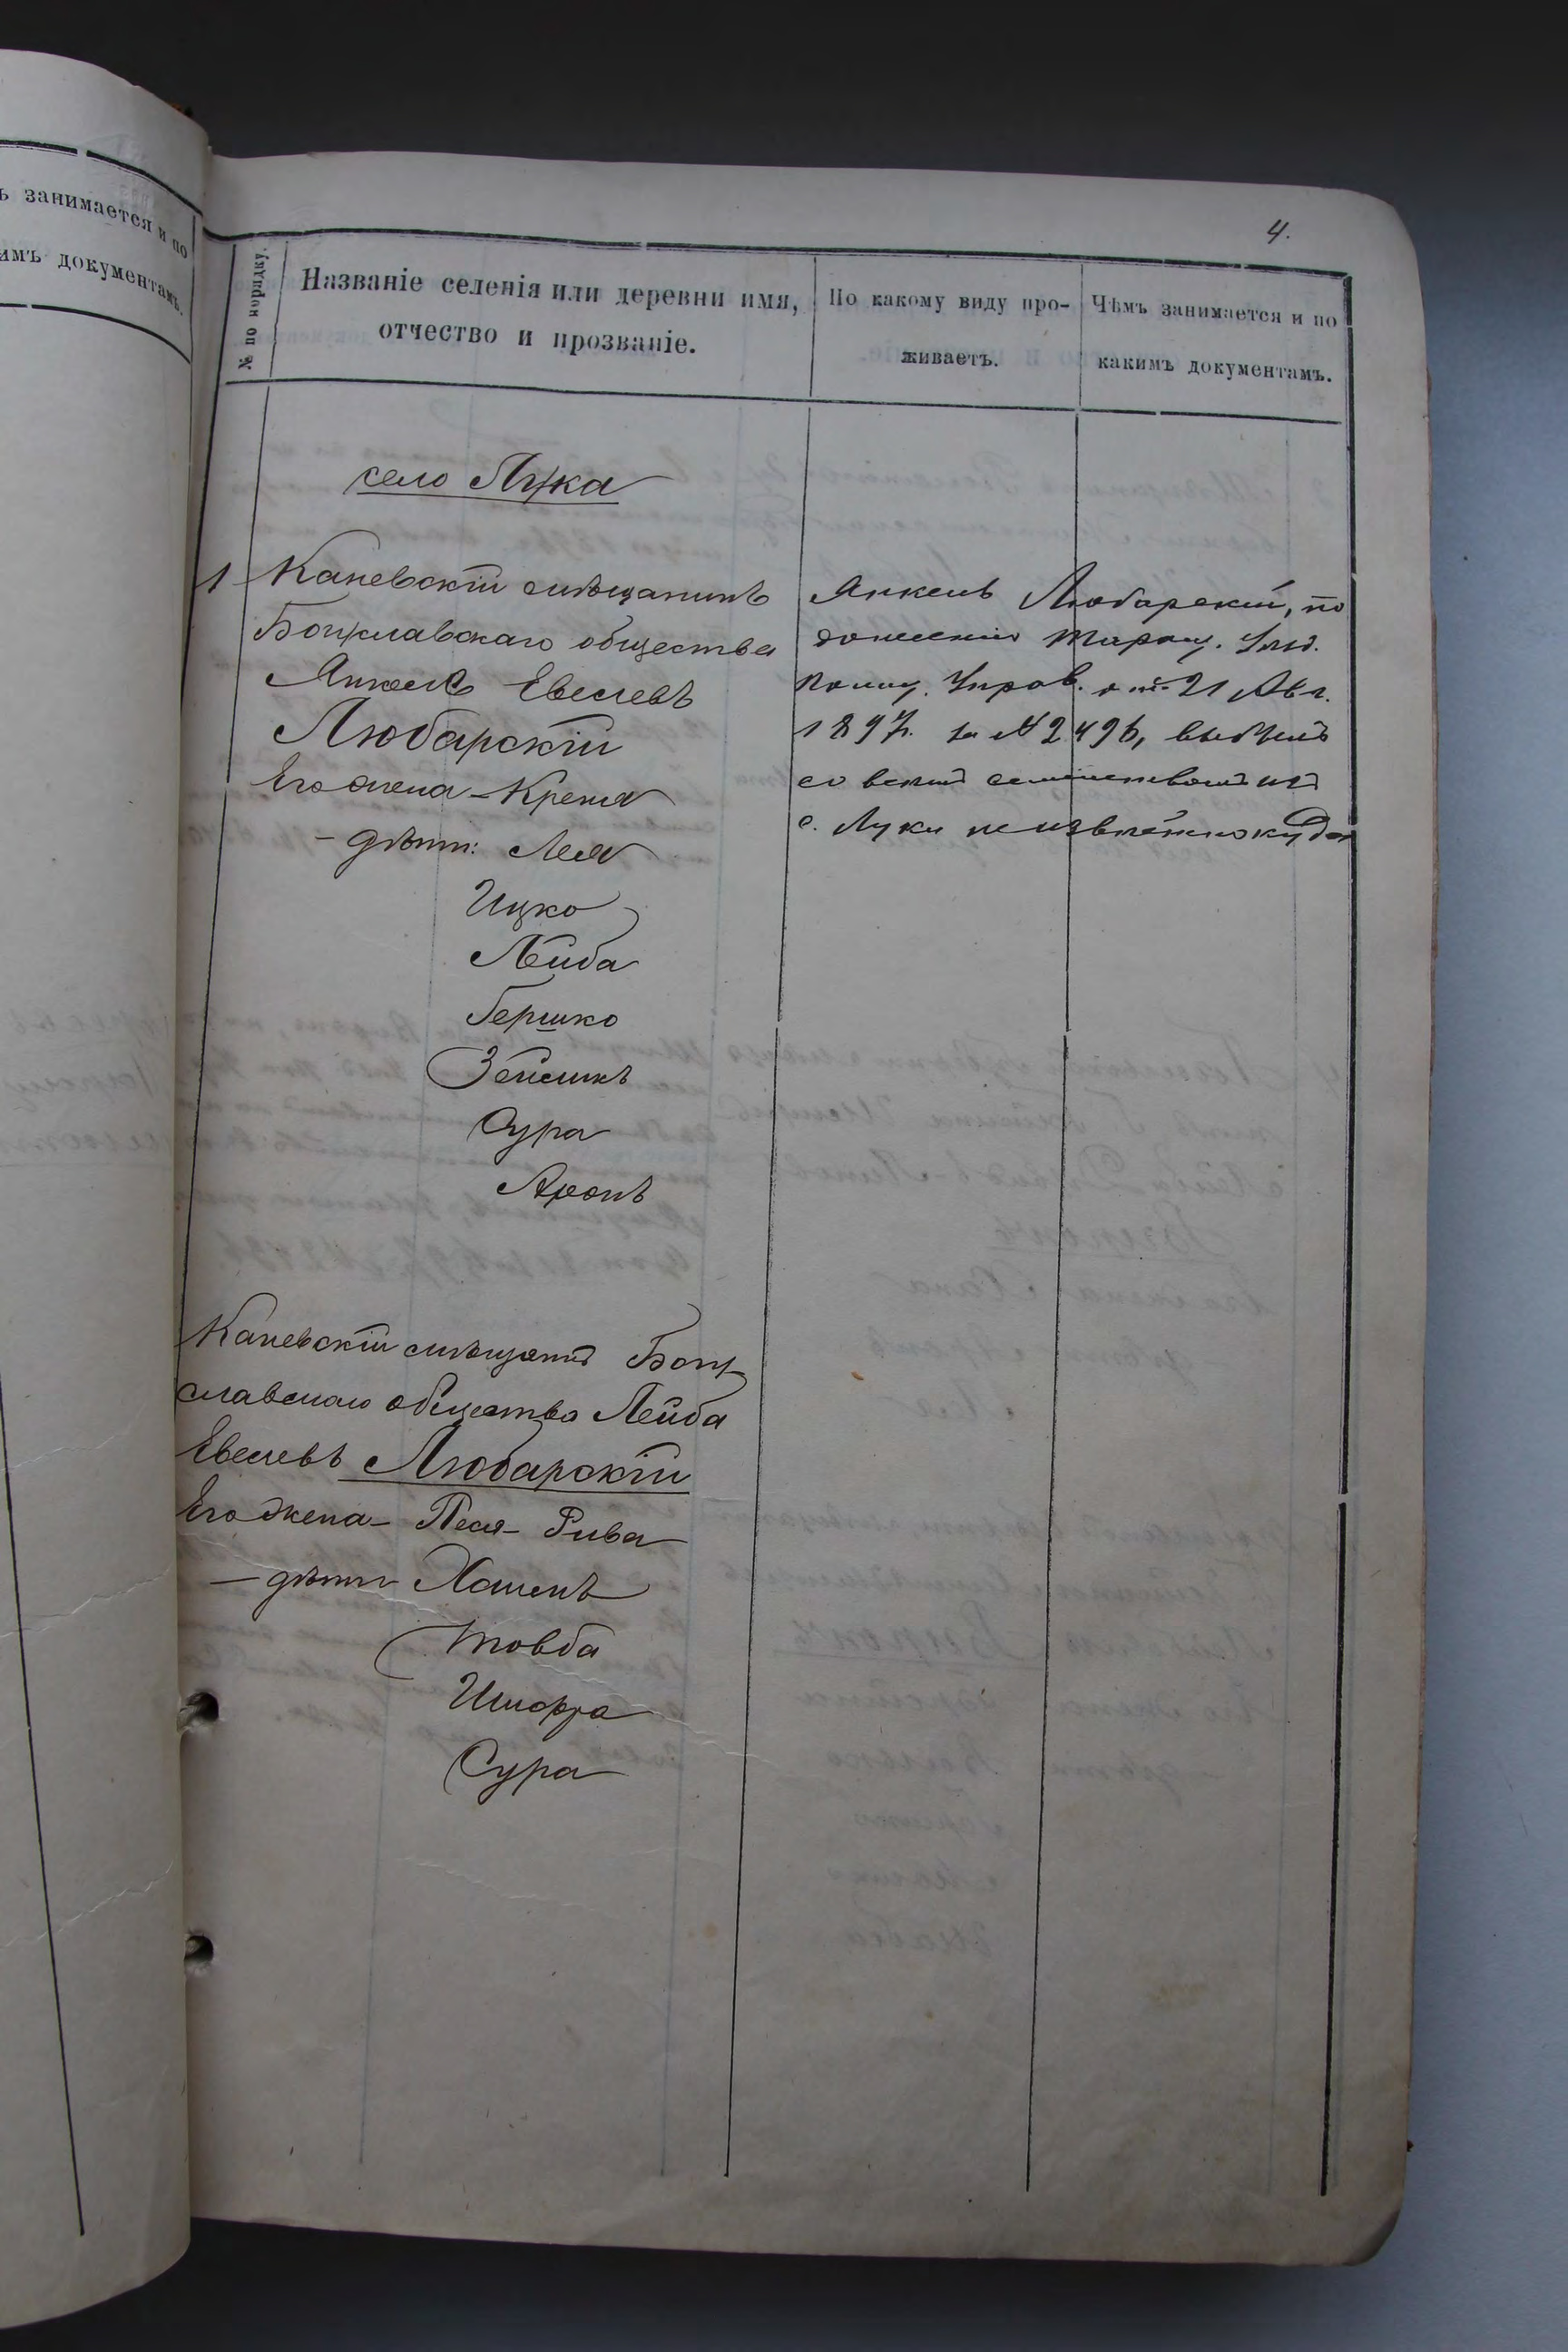 ъ занимается и по
имъ документамъ.
4.
№ по порядку.
Названіе селенія или деревни имя,
отчество и прозваніе.
По какому виду про-
живаетъ.
Чѣмъ занимается и по
какимъ документамъ.
село Лука
1 Каневскій мѣщанинъ
Богуславскаго общества
Янкель Евелевъ
Любарскій
Его жена - Крейня
- дѣти: Лея
Ицко
Лейба
Гершко
Зейликъ
Сура
Аронъ
Янкель Любарскій, по
донесенію Таращ. Уѣзд.
Полиц. Управ. отъ 21 Авг.
1897 г. за № 2496, выбылъ
со всѣмъ семействомъ изъ
с. Луки неизвѣстно куда
Каневскій мѣщанинъ Богу-
славскаго общества Лейба
Евелевъ Любарскій
Его жена - Песя - Рива
- дѣти
Товба
Сура